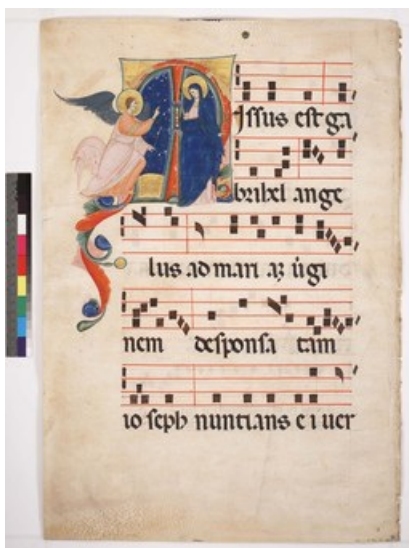 Missus est ga
brihel ange
lus ad mari aꝫ v̇gi
nem desponsa tam
io seph nuntians e i ver